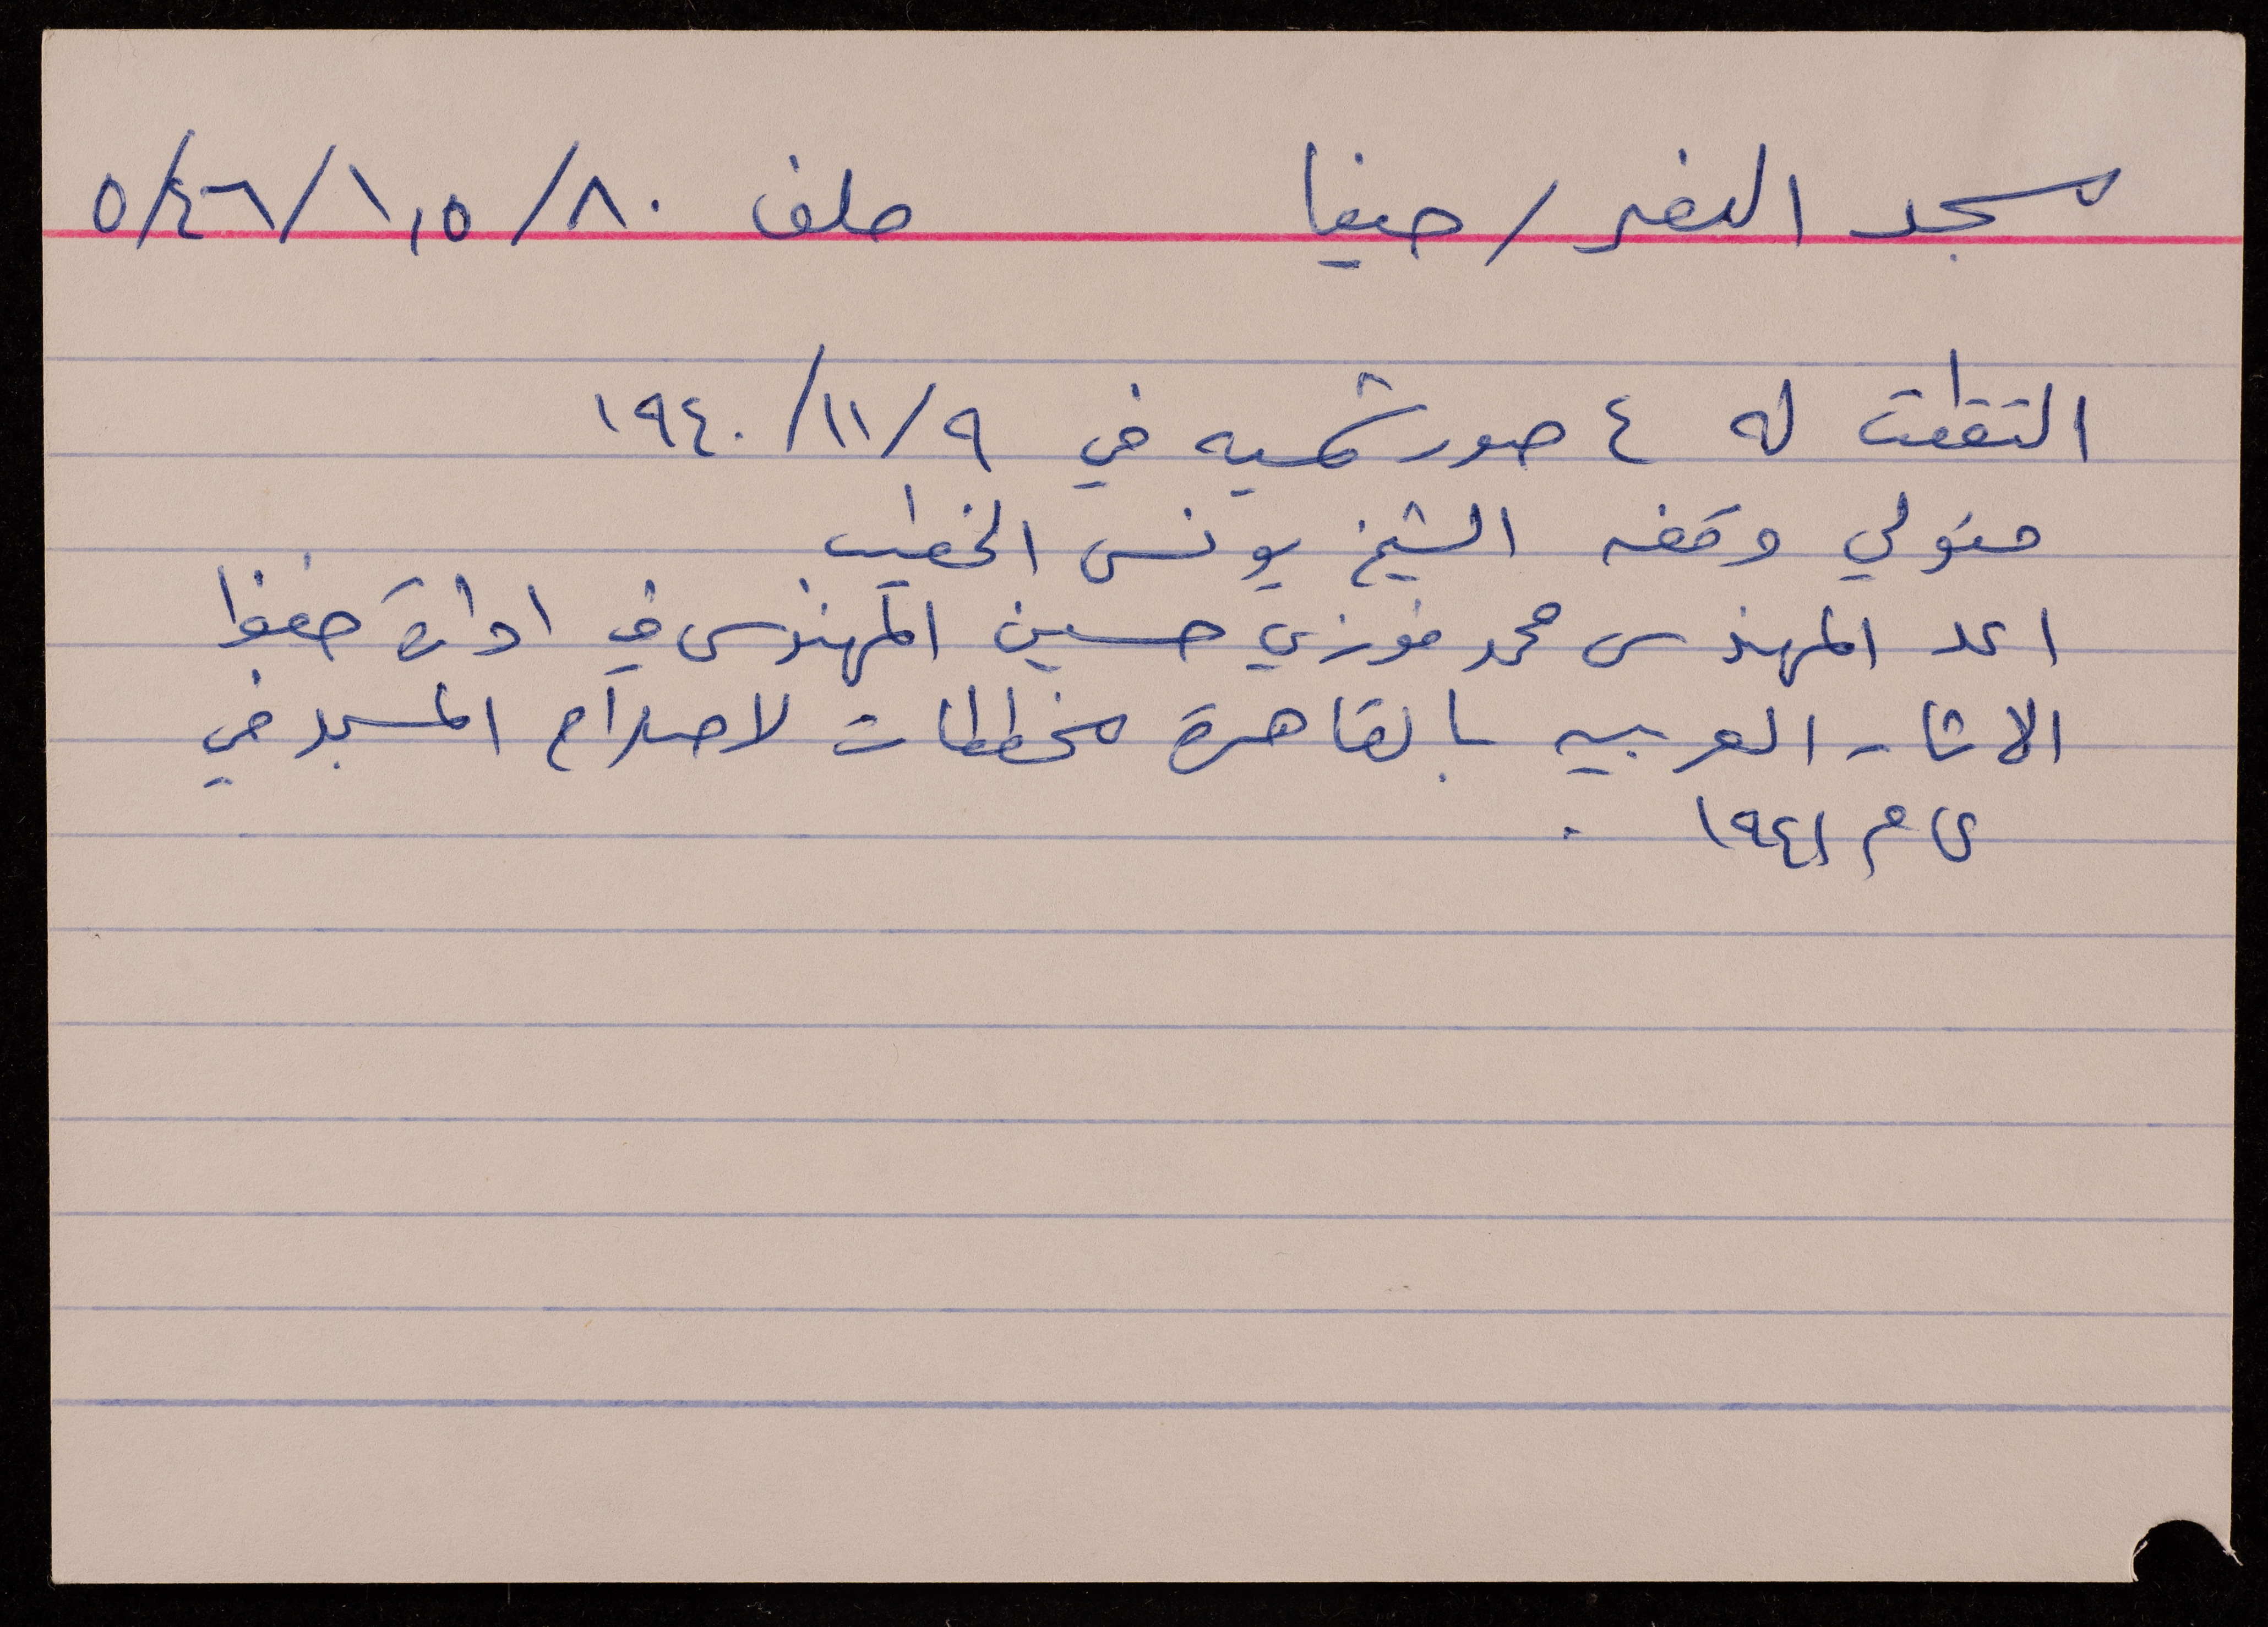 مسجد النصر / حيفا ملف ٥/٤٦/١,٥/٨٠
التقطت له ٤ صور شمسيه في ٩/١١/١٩٤٠
متولي وقفه الشيخ يونس الخطيب
اعد المهندس محمد فوزي حسين المهندس في ادارة حفظ
الاثار العربيه بالقاهرة مخططات لاصلاح المسجد في
عام ١٩٤١ .